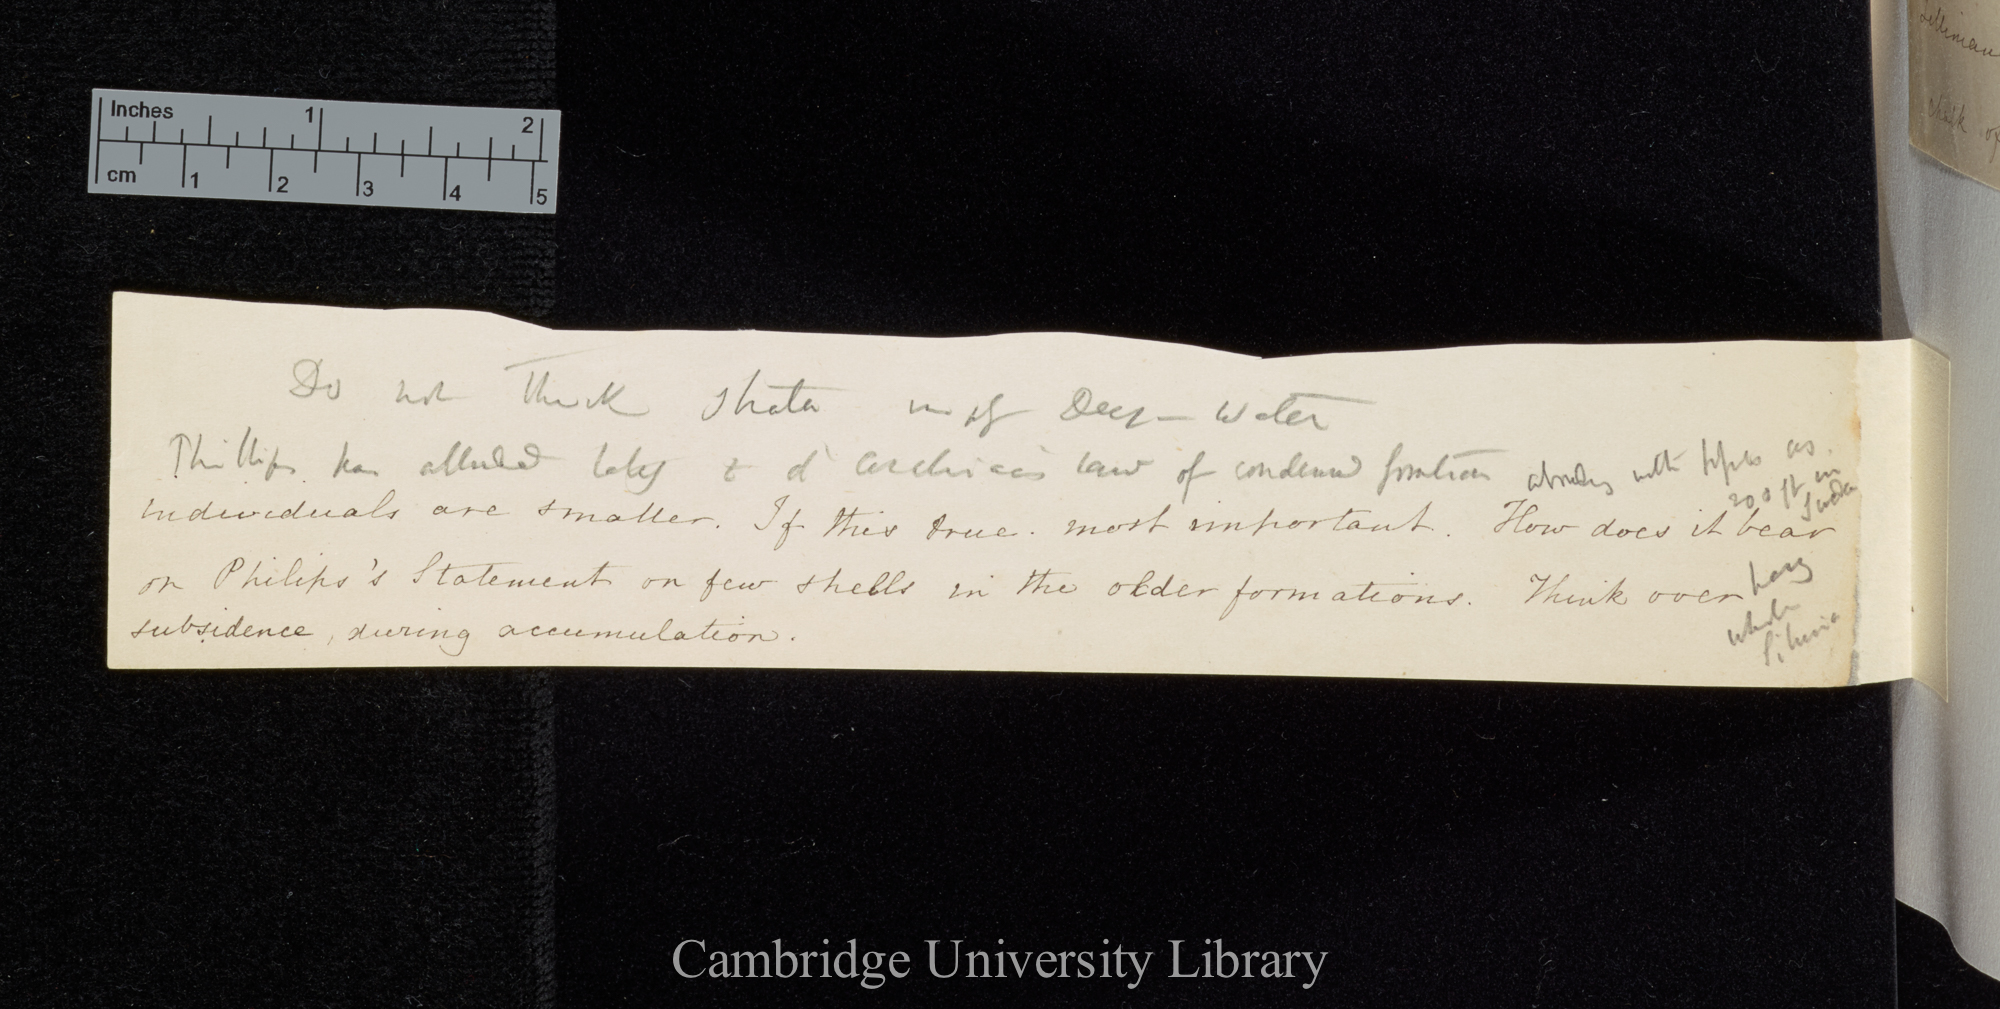 Inches 1 2
cm 1 2 3 4 5
Do not Thick Strata Deep-Water
Phillips has alluded lately to d'Archiac's law of condensed formations abounding with as
200 ft in
individuals are smaller. If this true. most important. How does it bear
on Philips's Statement on few shells in the older formations. Think over
subsidence, during accumulation.
whole
Siluria
Silurian
chalk of
Cambridge University Library